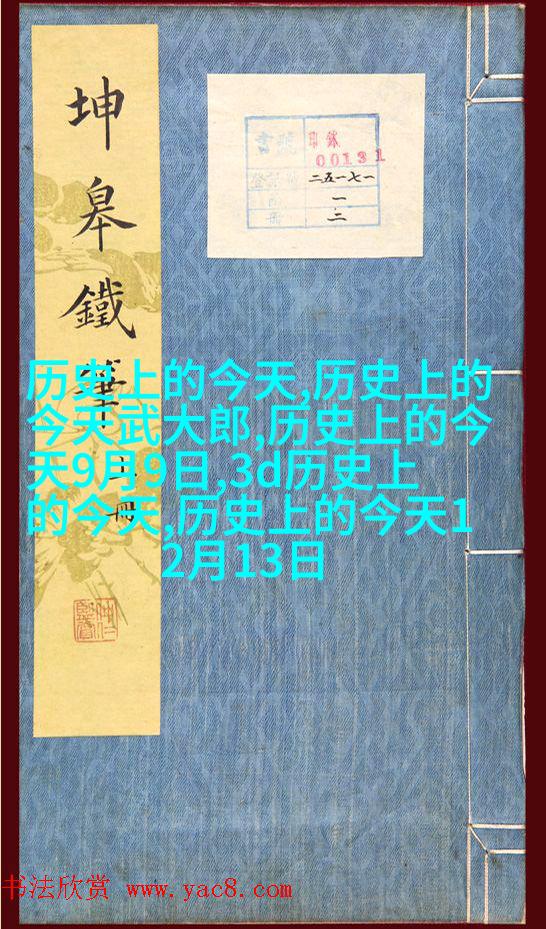 坤皋鐵筆
冊
書號
00131
二五一七一
一
二
历史上的今天,历史上的
今天武大郎,历史上的今
天9月9日,3d历史上
的今天,历史上的今天1
2月13日
书法欣赏 www.yac8.com